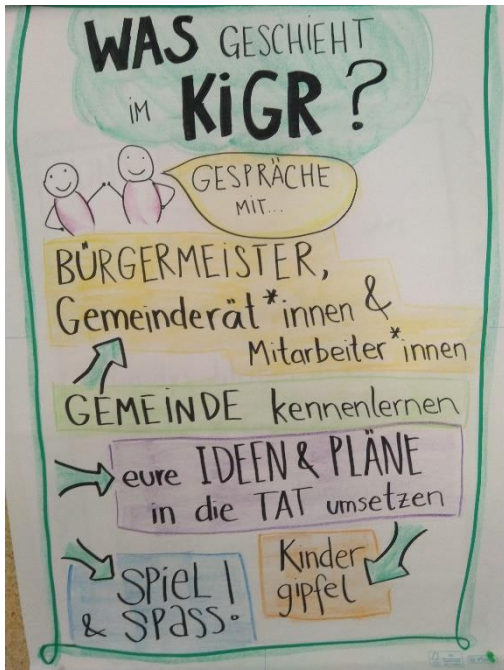 WAS GESCHIEHT
IM KiGR?
GESPRÄCHE
MIT...
BÜRGERMEISTER,
Gemeinderät*innen &
Mitarbeiter*innen
GEMEINDE kennenlernen
eure IDEEN & PLÄNE
in die TAT umsetzen
SPiEL!
& SPASS.
Kinder
gipfel